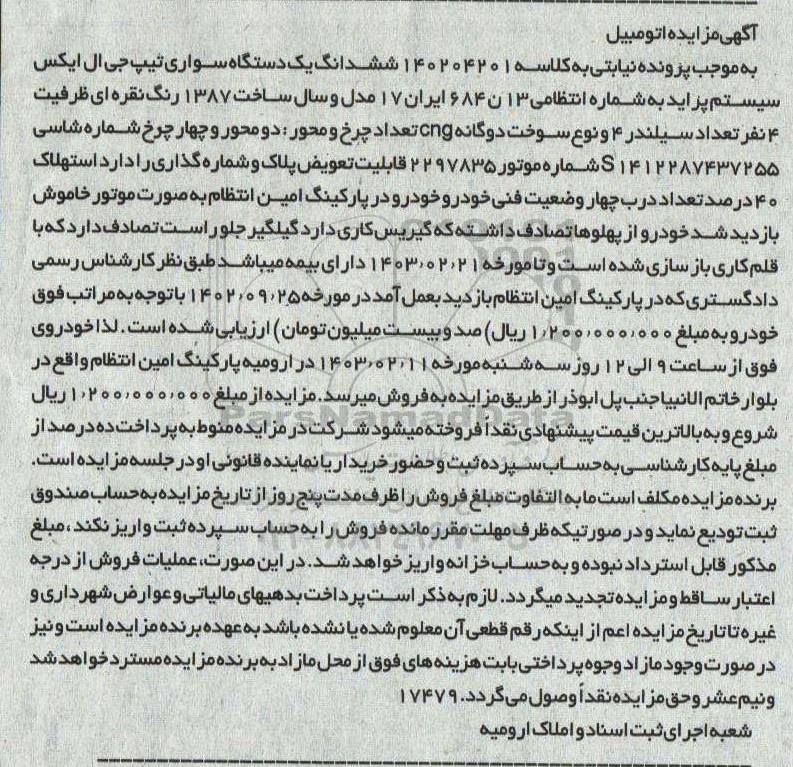 آگهی مزایده اتومبیل
به موجب پرونده نیابتی به کلاسه ۱۴۰۲۰۴۲۰۱ ششدانگ یک دستگاه سواری تیپ جی ال ایکس
سیستم پراید به شماره انتظامی ۱۳ ن ۶۸۴ ایران ۱۷ مدل و سال ساخت ۱۳۸۷ رنگ نقره ای ظرفیت
۴ نفر تعداد سیلندر ۴ و نوع سوخت دوگانه cng تعداد چرخ و محور : دو محور و چهار چرخ شماره شاسی
S۱۴۱۲۲۸۷۴۳۷۲۵۵ شماره موتور ۲۲۹۷۸۳۵ قابلیت تعویض پلاک و شماره گذاری را دارد استهلاک
۴۰ درصد تعداد درب چهار وضعیت فنی خودرو خودرو در پارکینگ امین انتظام به صورت موتور خاموش
بازدید شد خودرو از پهلوها تصادف داشته که گیریس کاری دارد گیلگیر جلو راست تصادف دارد که با
قلم کاری باز سازی شده است و تا مورخه ۱۴۰۳/۰۲/۲۱ دارای بیمه میباشد طبق نظر کارشناس رسمی
دادگستری که در پارکینگ امین انتظام بازدید بعمل آمد در مورخه ۱۴۰۲/۰۹/۲۵ با توجه به مراتب فوق
خودرو به مبلغ ۱/۲۰۰/۰۰۰/۰۰۰ ریال) صد و بیست میلیون تومان) ارزیابی شده است . لذا خودروی
فوق از ساعت ۹ الی ۱۲ روز سه شنبه مورخه ۱۴۰۳/۰۲/۱۱ در ارومیه پارکینگ امین انتظام واقع در
بلوار خاتم الانبیا جنب پل ابوذر از طریق مزایده به فروش میرسد. مزایده از مبلغ ۱/۲۰۰/۰۰۰/۰۰۰ ریال
شروع و به بالاترین قیمت پیشنهادی نقداً فروخته میشود شرکت در مزایده منوط به پرداخت ده درصد از
مبلغ پایه کارشناسی به حساب سپرده ثبت و حضور خریدار یا نماینده قانونی او در جلسه مزایده است.
برنده مزایده مکلف است مابه التفاوت مبلغ فروش را ظرف مدت پنج روز از تاریخ مزایده به حساب صندوق
ثبت تودیع نماید و در صورتیکه ظرف مهلت مقرر مانده فروش را به حساب سپرده ثبت واریز نکند، مبلغ
مذکور قابل استرداد نبوده و به حساب خزانه واریز خواهد شد. در این صورت، عملیات فروش از درجه
اعتبار ساقط و مزایده تجدید میگردد. لازم به ذکر است پرداخت بدهیهای مالیاتی و عوارض شهرداری و
غیره تا تاریخ مزایده اعم از اینکه رقم قطعی آن معلوم شده یا نشده باشد به عهده برنده مزایده است و نیز
در صورت وجود مازاد وجوه پرداختی بابت هزینه های فوق از محل مازاد به برنده مزایده مسترد خواهد شد
و نیم عشر و حق مزایده نقداً وصول می گردد. ۱۷۴۷۹
شعبه اجرای ثبت اسناد و املاک ارومیه
ParsNamadData